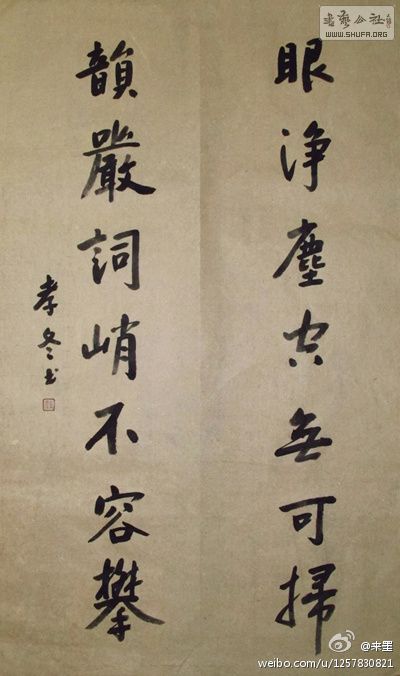 眼淨塵空無可掃
韻嚴詞峭不容攀
孝冬书
書藝公社
WWW.SHUFA.ORG
@来墨
weibo.com/u/1257830821